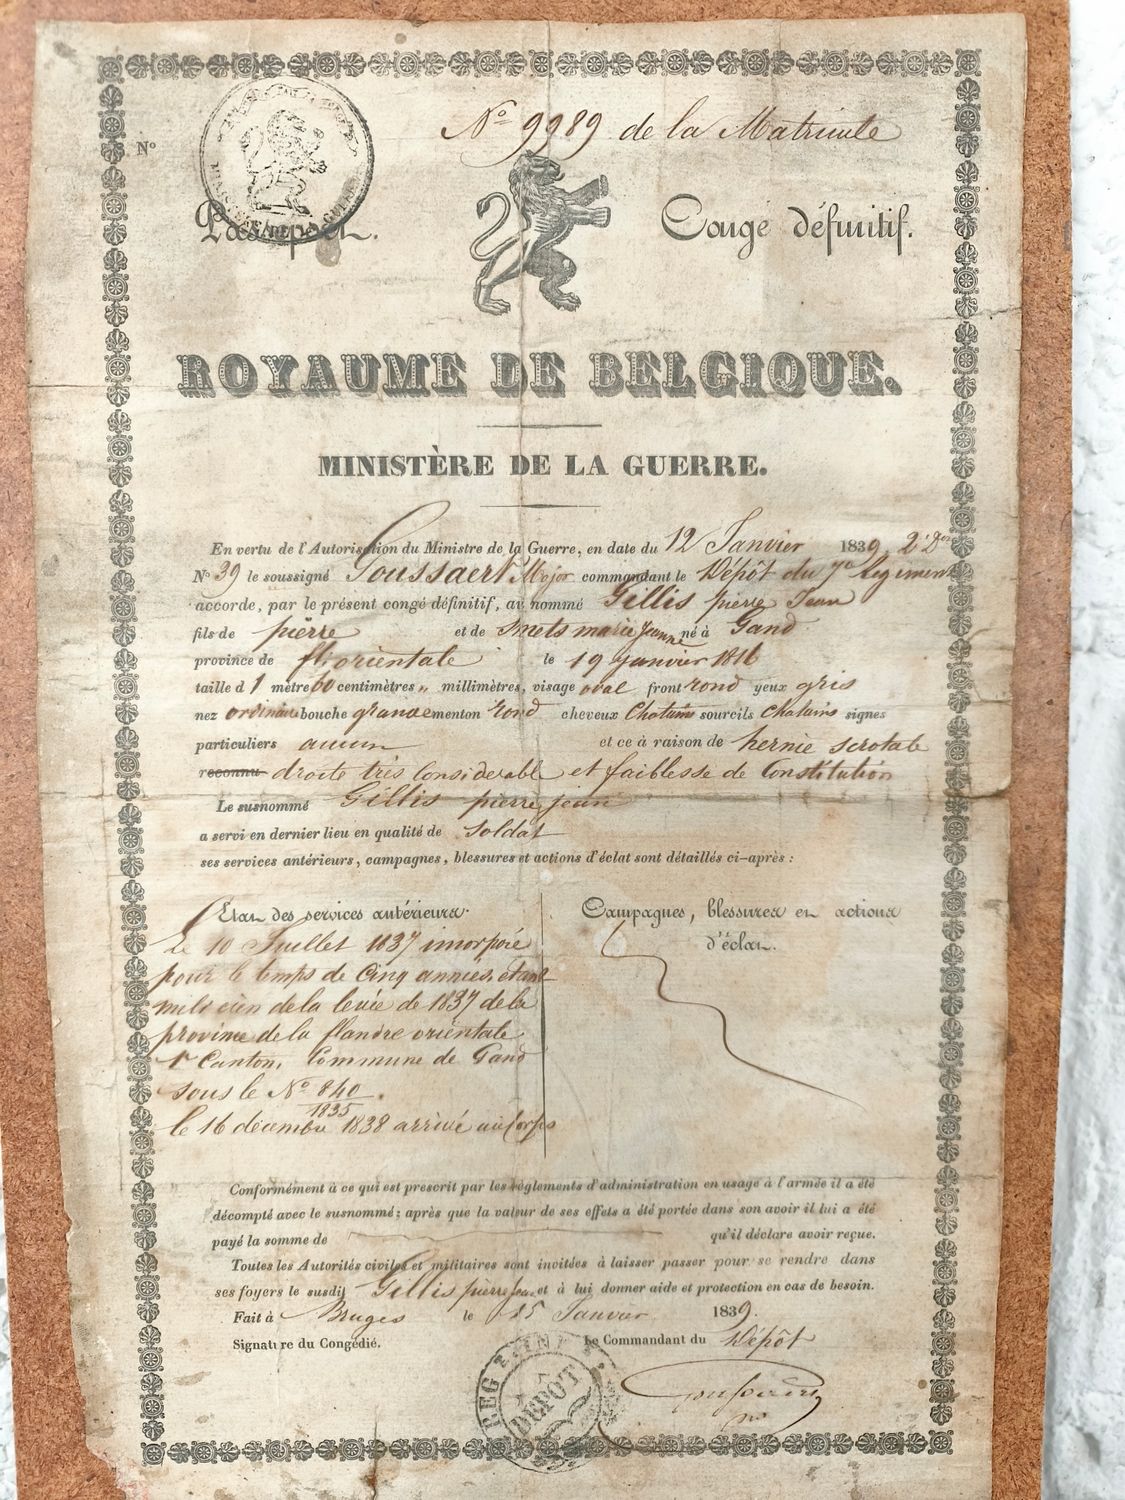 N° 9989 de la Matricule
N°
Passeport.
Congé définitif.
ROYAUME DE BELGIQUE.
MINISTÈRE DE LA GUERRE.
En vertu de l'Autorisation du Ministre de la Guerre, en date du 12 Janvier 1839, 2e Don
N° 39 le soussigné Goussaert Major commandant le Dépôt du 7e Régiment
accorde, par le présent congé définitif, au nommé Gillis pierre Jean
fils de pierre et de Smets marie Jeanne né à Gand
province de fl: orientale le 19 janvier 1816
taille d 1 mètre 60 centimètres " millimètres, visage oval front rond yeux gris
nez ordinaire bouche grande menton rond cheveux Chatains sourcils chatains signes
particuliers aucun et ce à raison de hernie scrotale
reconnu droite très Considerable et faiblesse de Constitution
Le susnommé Gillis pierre jean
a servi en dernier lieu en qualité de Soldat
ses services antérieurs, campagnes, blessures et actions d'éclat sont détaillés ci-après :
État des services antérieurs.
Le 10 Juillet 1837 incorporé
pour le temps de Cinq années, étant
milicien de la levée de 1837 de la
province de la flandre orientale
1r Canton, Commune de Gand
sous le N° 840
1835
le 16 décembre 1838 arrivé au Corps
Campagnes, blessures et actions
d'éclat.
Conformément à ce qui est prescrit par les règlements d'administration en usage à l'armée il a été
décompté avec le susnommé ; après que la valeur de ses effets a été portée dans son avoir il lui a été
payé la somme de qu'il déclare avoir reçue.
Toutes les Autorités civiles et militaires sont invitées à laisser passer pour se rendre dans
ses foyers le susdit Gillis pierre Jean et à lui donner aide et protection en cas de besoin.
Fait à Bruges le 15 Janvier 1839.
Signature du Congédié.
Le Commandant du Dépôt
DÉPÔT